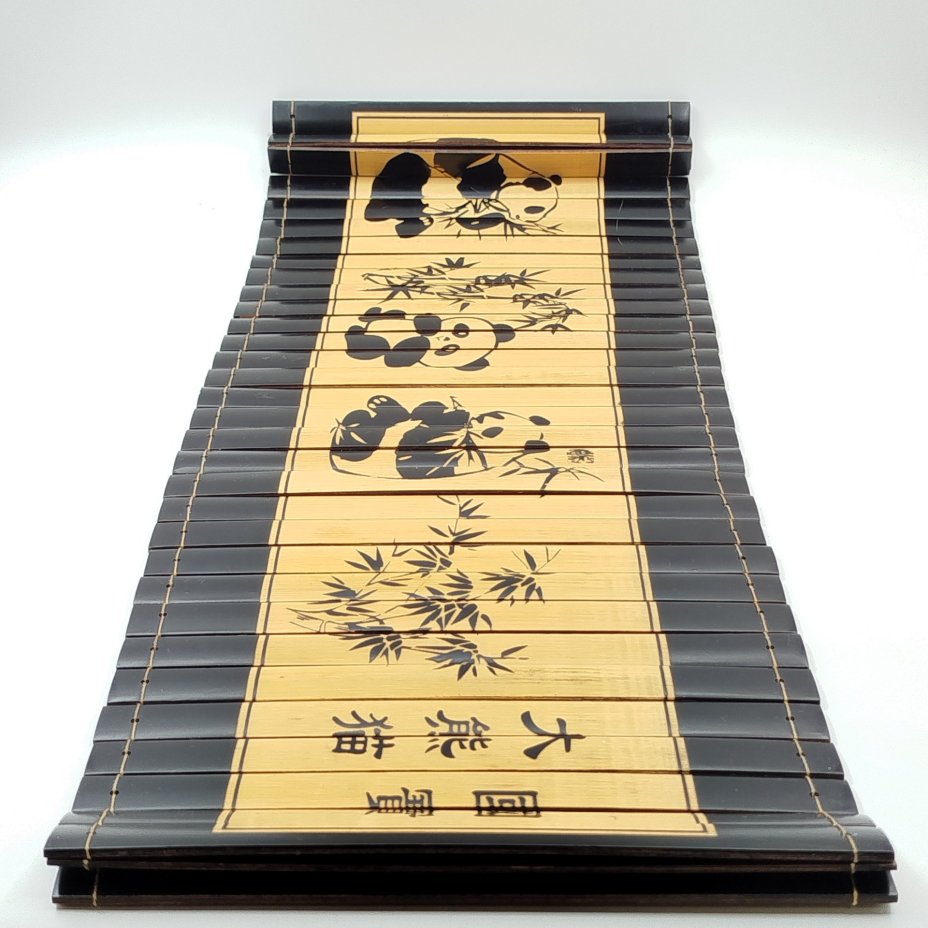 國寶
大熊猫